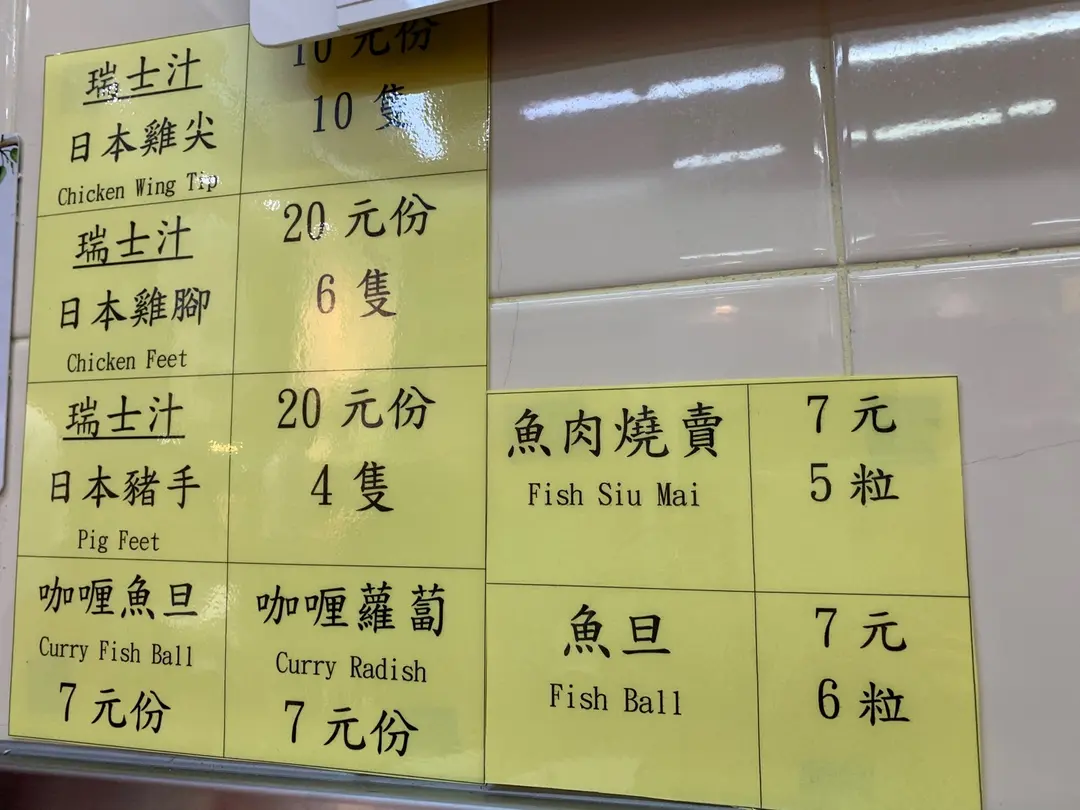 瑞士汁
日本雞尖
Chicken Wing Tip
10 元份
10 隻
瑞士汁
日本雞腳
Chicken Feet
20 元份
6 隻
瑞士汁
日本豬手
Pig Feet
20 元份
4 隻
咖喱魚旦
Curry Fish Ball
7 元份
咖喱蘿蔔
Curry Radish
7 元份
魚肉燒賣
Fish Siu Mai
7 元
5 粒
魚旦
Fish Ball
7 元
6 粒